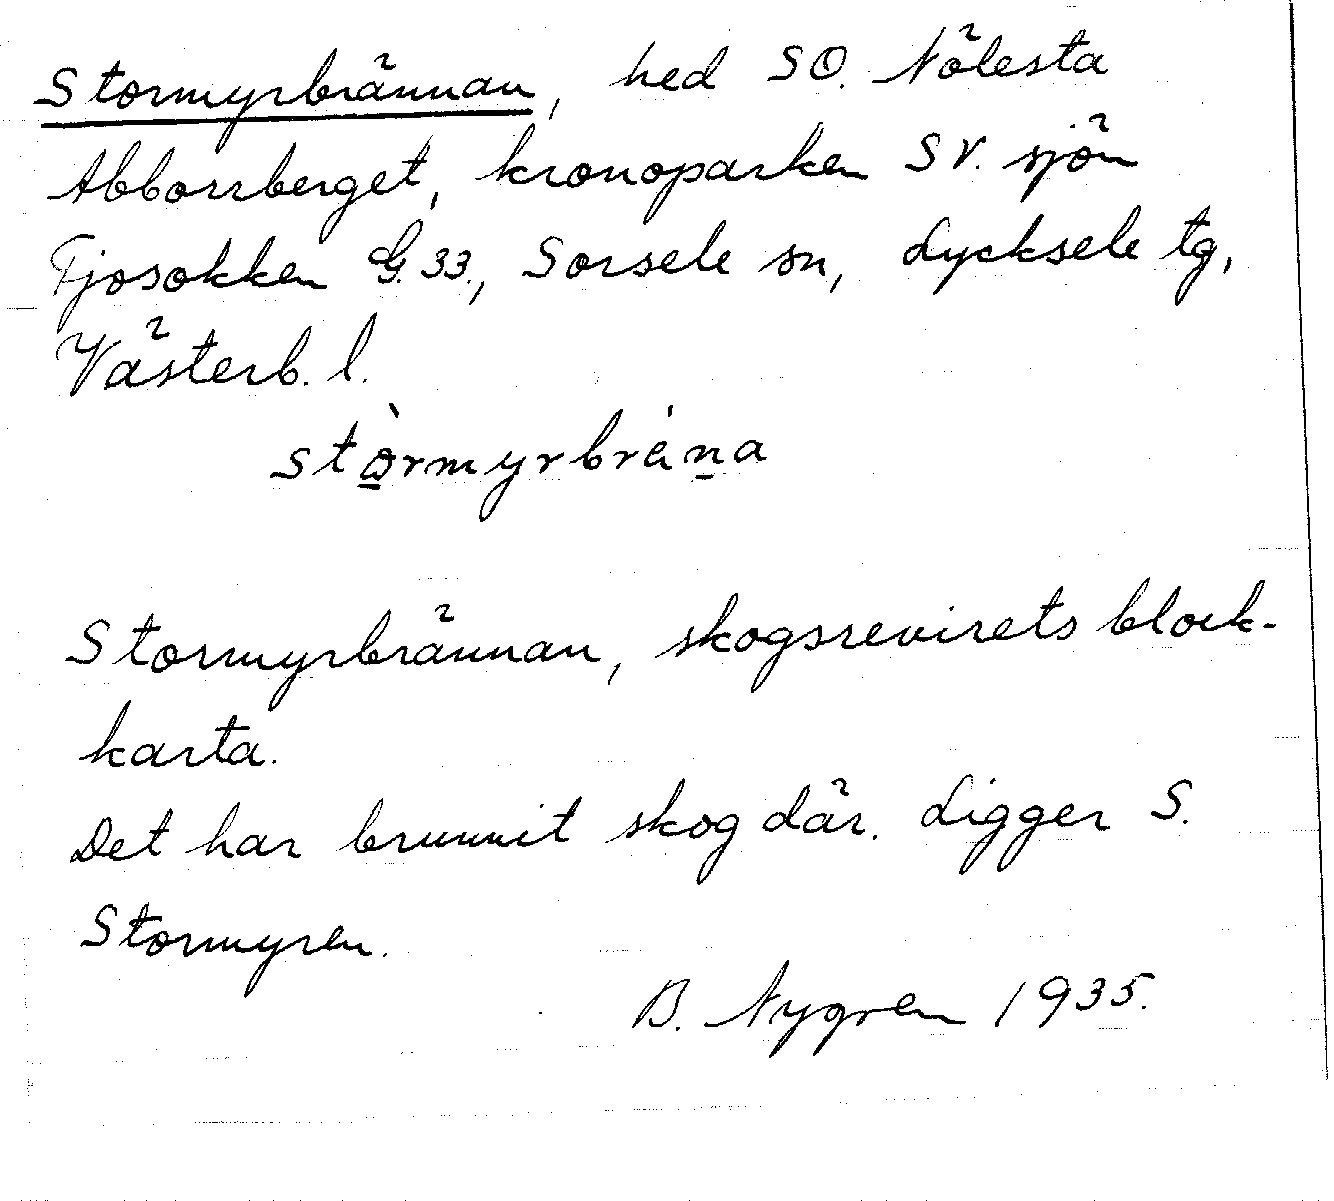 Stormyrbrännan, hed SO. Nölesta
Abborrberget, kronoparken SV. sjön
Fjosokken G. 33., Sorsele sn, Lycksele tg,
Västerb. l.
stòrmyrbrána
Stormyrbrännan, skogsrevirets block-
karta.
Det har brunnit skog där. Ligger S.
Stormyren.
B. Nygren 1935.